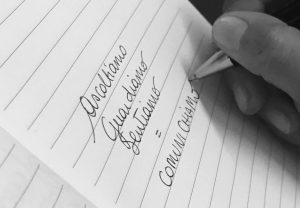 ascoltiamo
Guardiamo
Sentiamo
=
COMUNICHIAMO